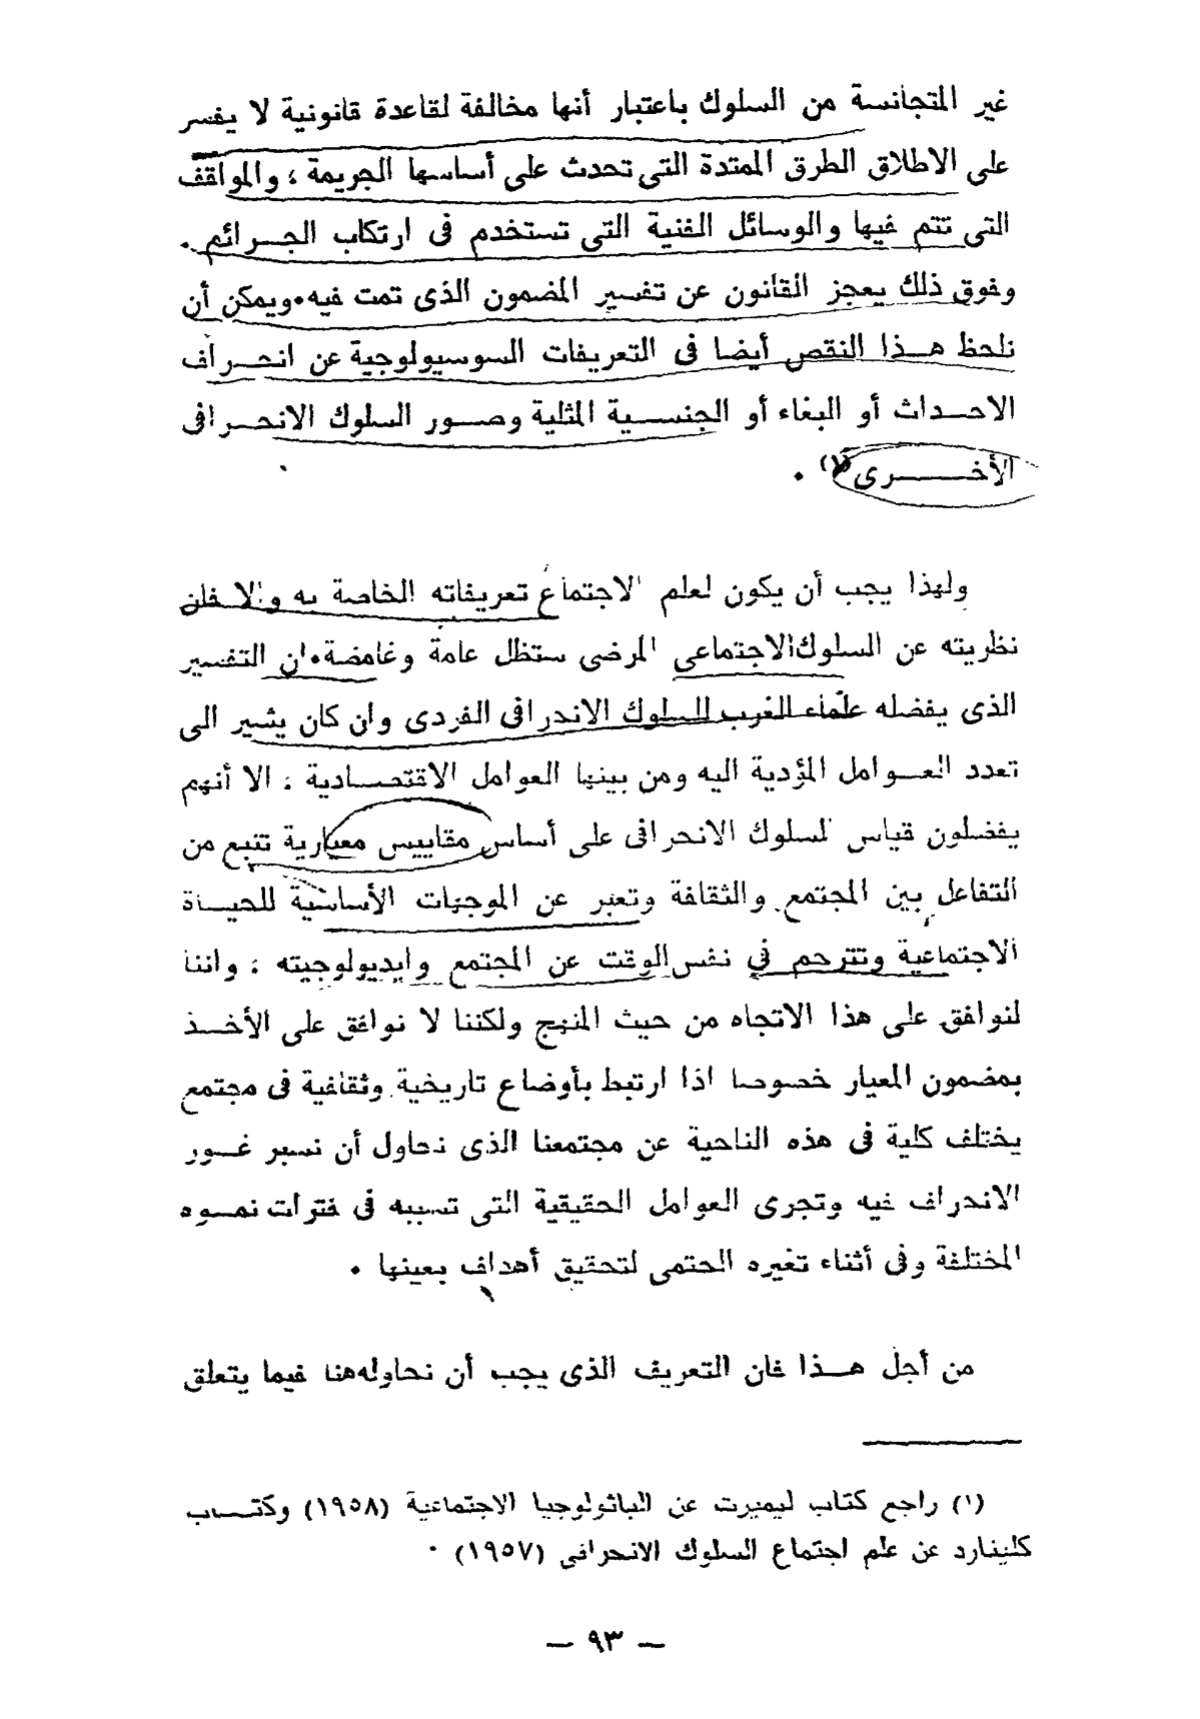 غير المتجانسة من السلوك باعتبار أنها مخالفة لقاعدة قانونية لا يفسر
على الاطلاق الطرق الممتدة التى تحدث على أساسها الجريمة ، والمواقف
التى تتم فيها والوسائل الفنية التى تستخدم فى ارتكاب الجـرائم .
وفوق ذلك يعجز القانون عن تفسير المضمون الذى تمت فيه . ويمكن أن
نلحظ هـذا النقص أيضا فى التعريفات السوسيولوجية عن انحـراف
الاحـداث أو البغاء أو الجنسـية المثلية وصـور السلوك الانحـرافى
الأخـــرى (١) .
ولهذا يجب أن يكون لعلم الاجتماع تعريفاته الخاصة به والا فان
نظريته عن السلوك الاجتماعى المرضى ستظل عامة وغامضة . ان التفسير
الذى يفضله علماء الغرب للسلوك الانحرافى الفردى وان كان يشير الى
تعدد العـوامل المؤدية اليه ومن بينها العوامل الاقتصـادية ، الا أنهم
يفضلون قياس السلوك الانحرافى على أساس مقاييس معيارية تنبع من
التفاعل بين المجتمع والثقافة وتعبر عن الموجهات الأساسية للحيـاة
الاجتماعية وتترجم في نفس الوقت عن المجتمع وايديولوجيته ، واننا
لنوافق على هذا الاتجاه من حيث المنهج ولكننا لا نوافق على الأخـذ
بمضمون المعيار خصوصا اذا ارتبط بأوضاع تاريخية وثقافية فى مجتمع
يختلف كلية فى هذه الناحية عن مجتمعنا الذى نحاول أن نسبر غـور
الانحراف فيه وتجرى العوامل الحقيقية التى تسببه فى فترات نمـوه
المختلفة وفى أثناء تغيره الحتمى لتحقيق أهداف بعينها .
من أجل هـذا فان التعريف الذى يجب أن نحاوله هنا فيما يتعلق
(١) راجع كتاب ليميرت عن الباثولوجيا الاجتماعية (١٩٥٨) وكتـاب
كلينارد عن علم اجتماع السلوك الانحرافى (١٩٥٧) .
— ٩٣ —